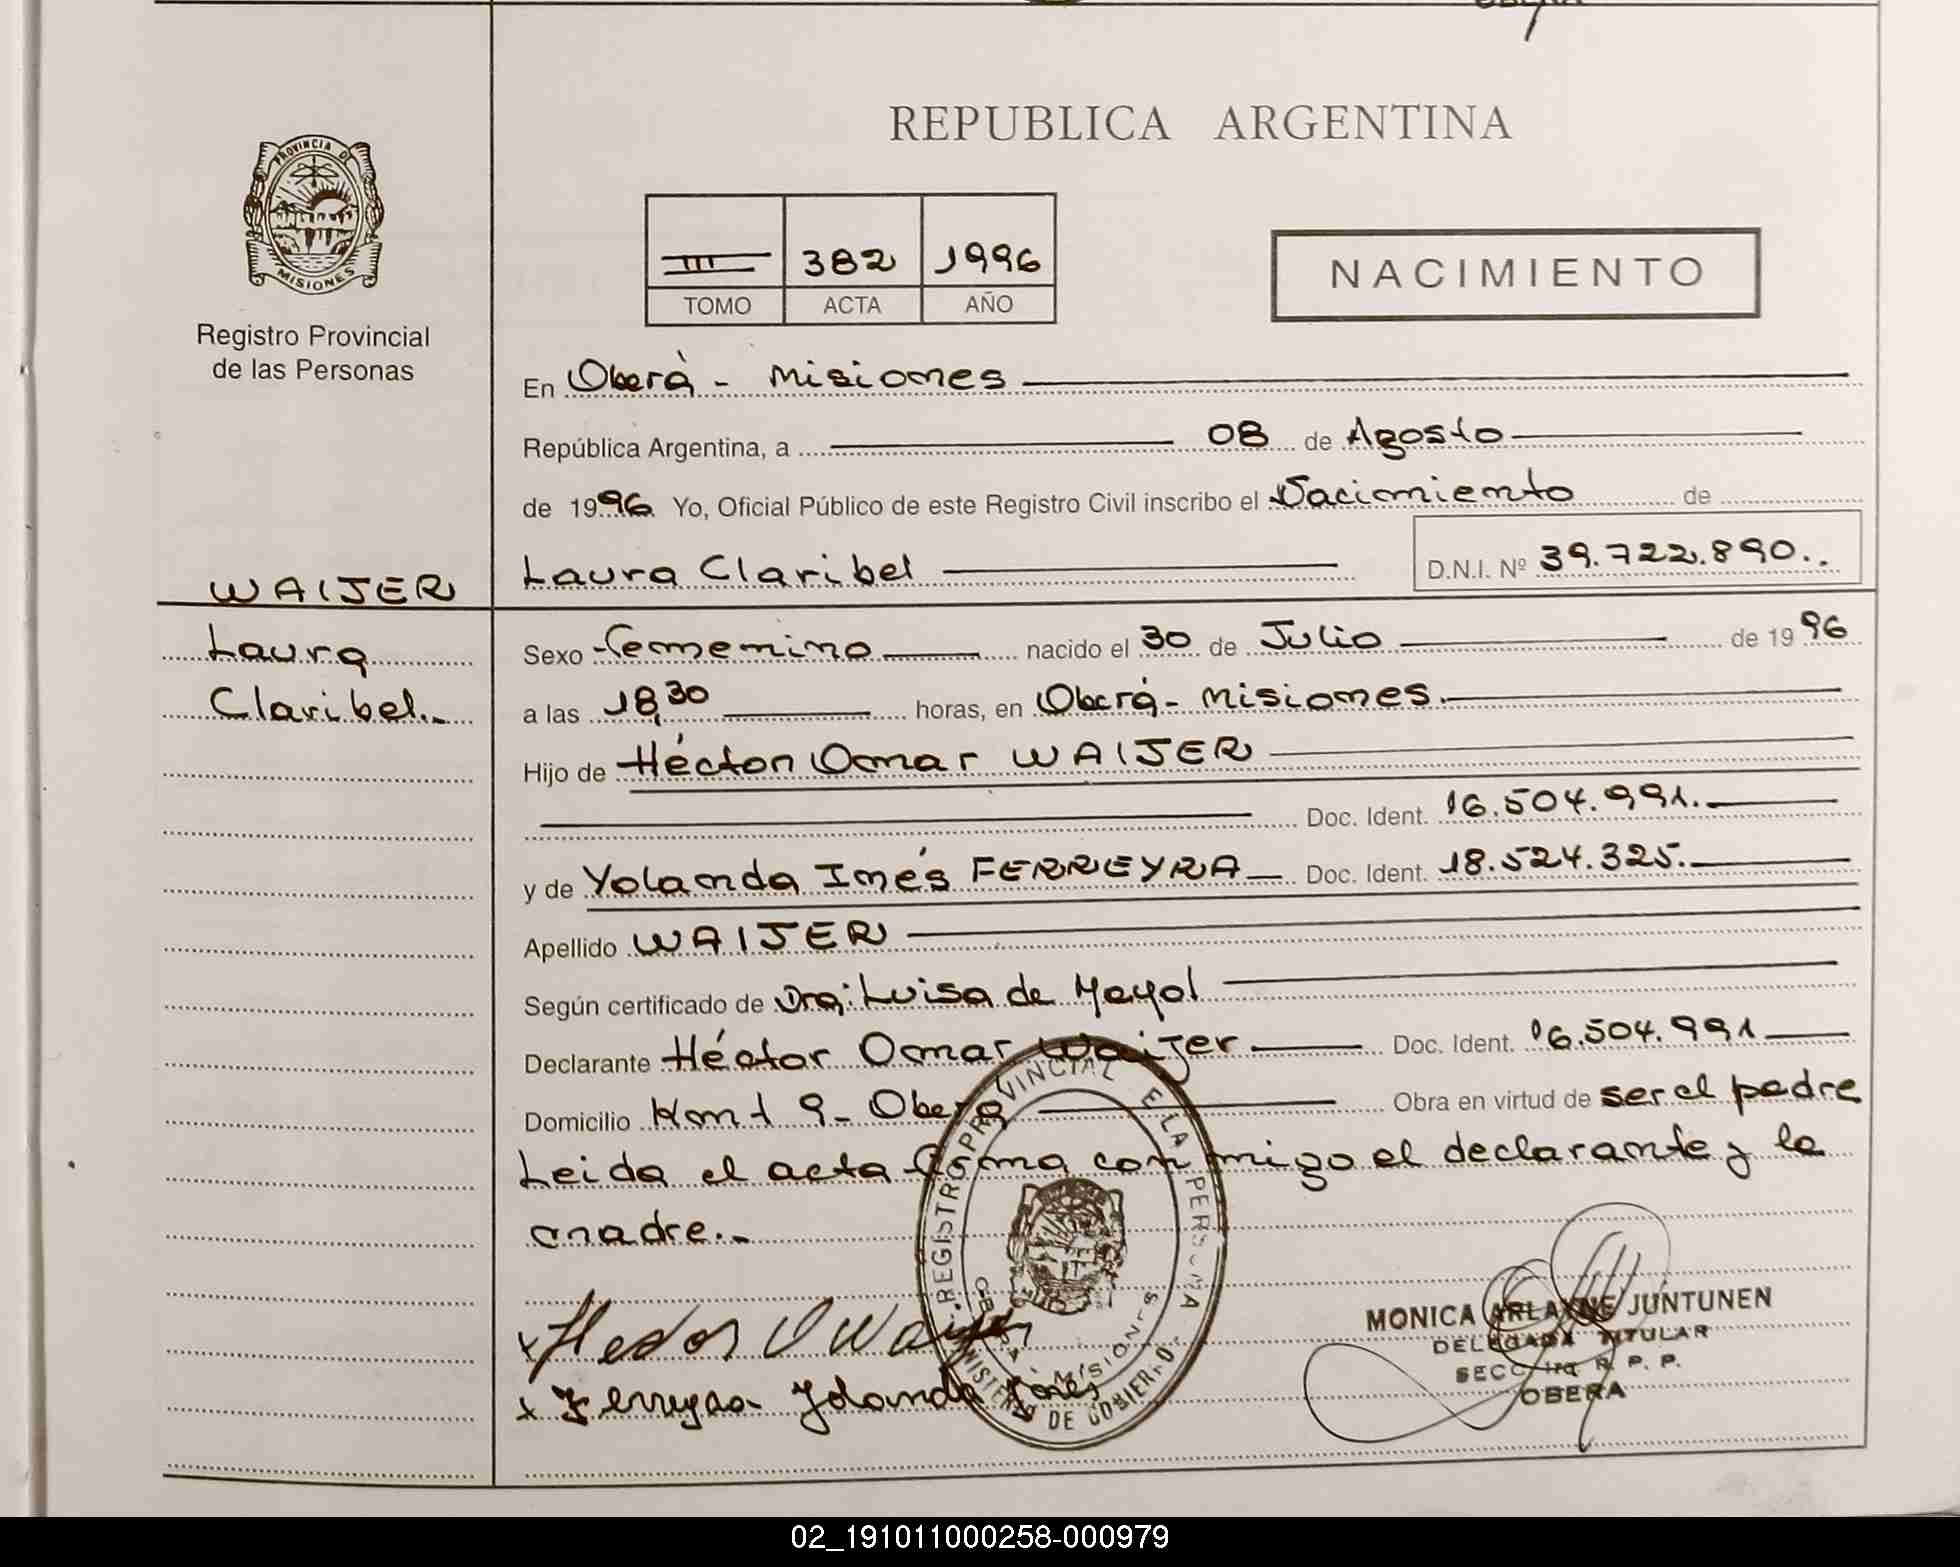 REPUBLICA ARGENTINA
PROVINCIA DE
MISIONES
Registro Provincial
de las Personas
III 382 1996
TOMO ACTA AÑO
NACIMIENTO
En Oberá - Misiones
República Argentina, a 08 de Agosto
de 1996 Yo, Oficial Público de este Registro Civil inscribo el Nacimiento de
Laura Claribel D.N.I. Nº 39.722.890.
WAIJER
Laura
Claribel.
Sexo Femenino nacido el 30 de Julio de 1996
a las 18,30 horas, en Oberá - Misiones.
Hijo de Héctor Omar WAIJER
Doc. Ident. 16.504.991.
y de Yolanda Inés FERREYRA Doc. Ident. 18.524.325.
Apellido WAIJER
Según certificado de Dra: Luisa de Mayol
Declarante Héctor Omar Waijer Doc. Ident. 16.504.991
Domicilio Km 9 - Oberá Obra en virtud de ser el padre
Leida el acta firma conmigo el declarante y la
madre.
x Hector O Waijer
x Ferreyra Yolanda Ines
REGISTRO PROVINCIAL
MISIONES
MINISTERIO DE GOBIERNO
MONICA ARLAYNE JUNTUNEN
DELEGADA TITULAR
SECC. 1ra R. P. P.
OBERA
02_191011000258-000979